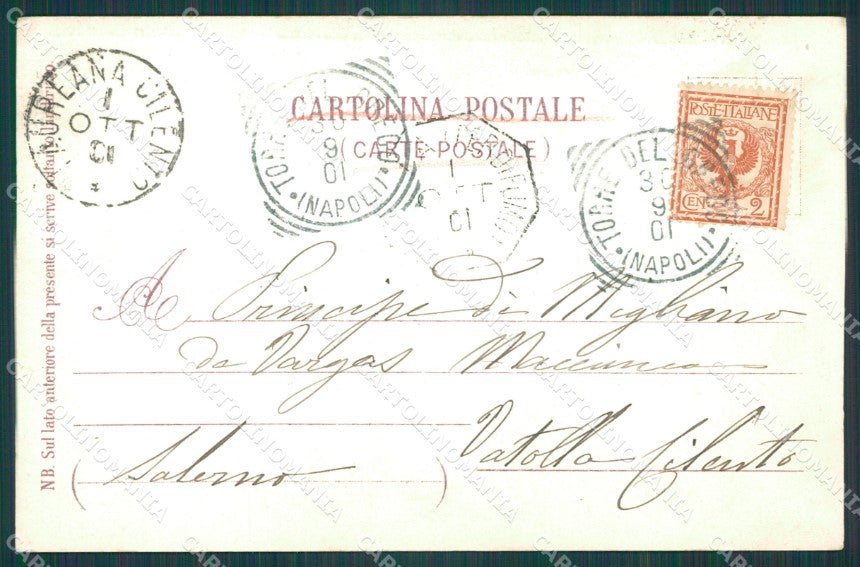 CARTOLINA POSTALE
(CARTE POSTALE)
POSTE ITALIANE
CENT. 2
TORRE DEL GRECO
30
9
01
(NAPOLI)
TORRE DEL GRECO
30
9
01
(NAPOLI)
LAUREANA CILENTO
1
OTT
01
1
OTT
01
A Principe di Migliano
de Vargas Macciucca
Vatolla Cilento
Salerno
NB. Sul lato anteriore della presente si scrive soltanto l'indirizzo
CARTOLINOMANIA